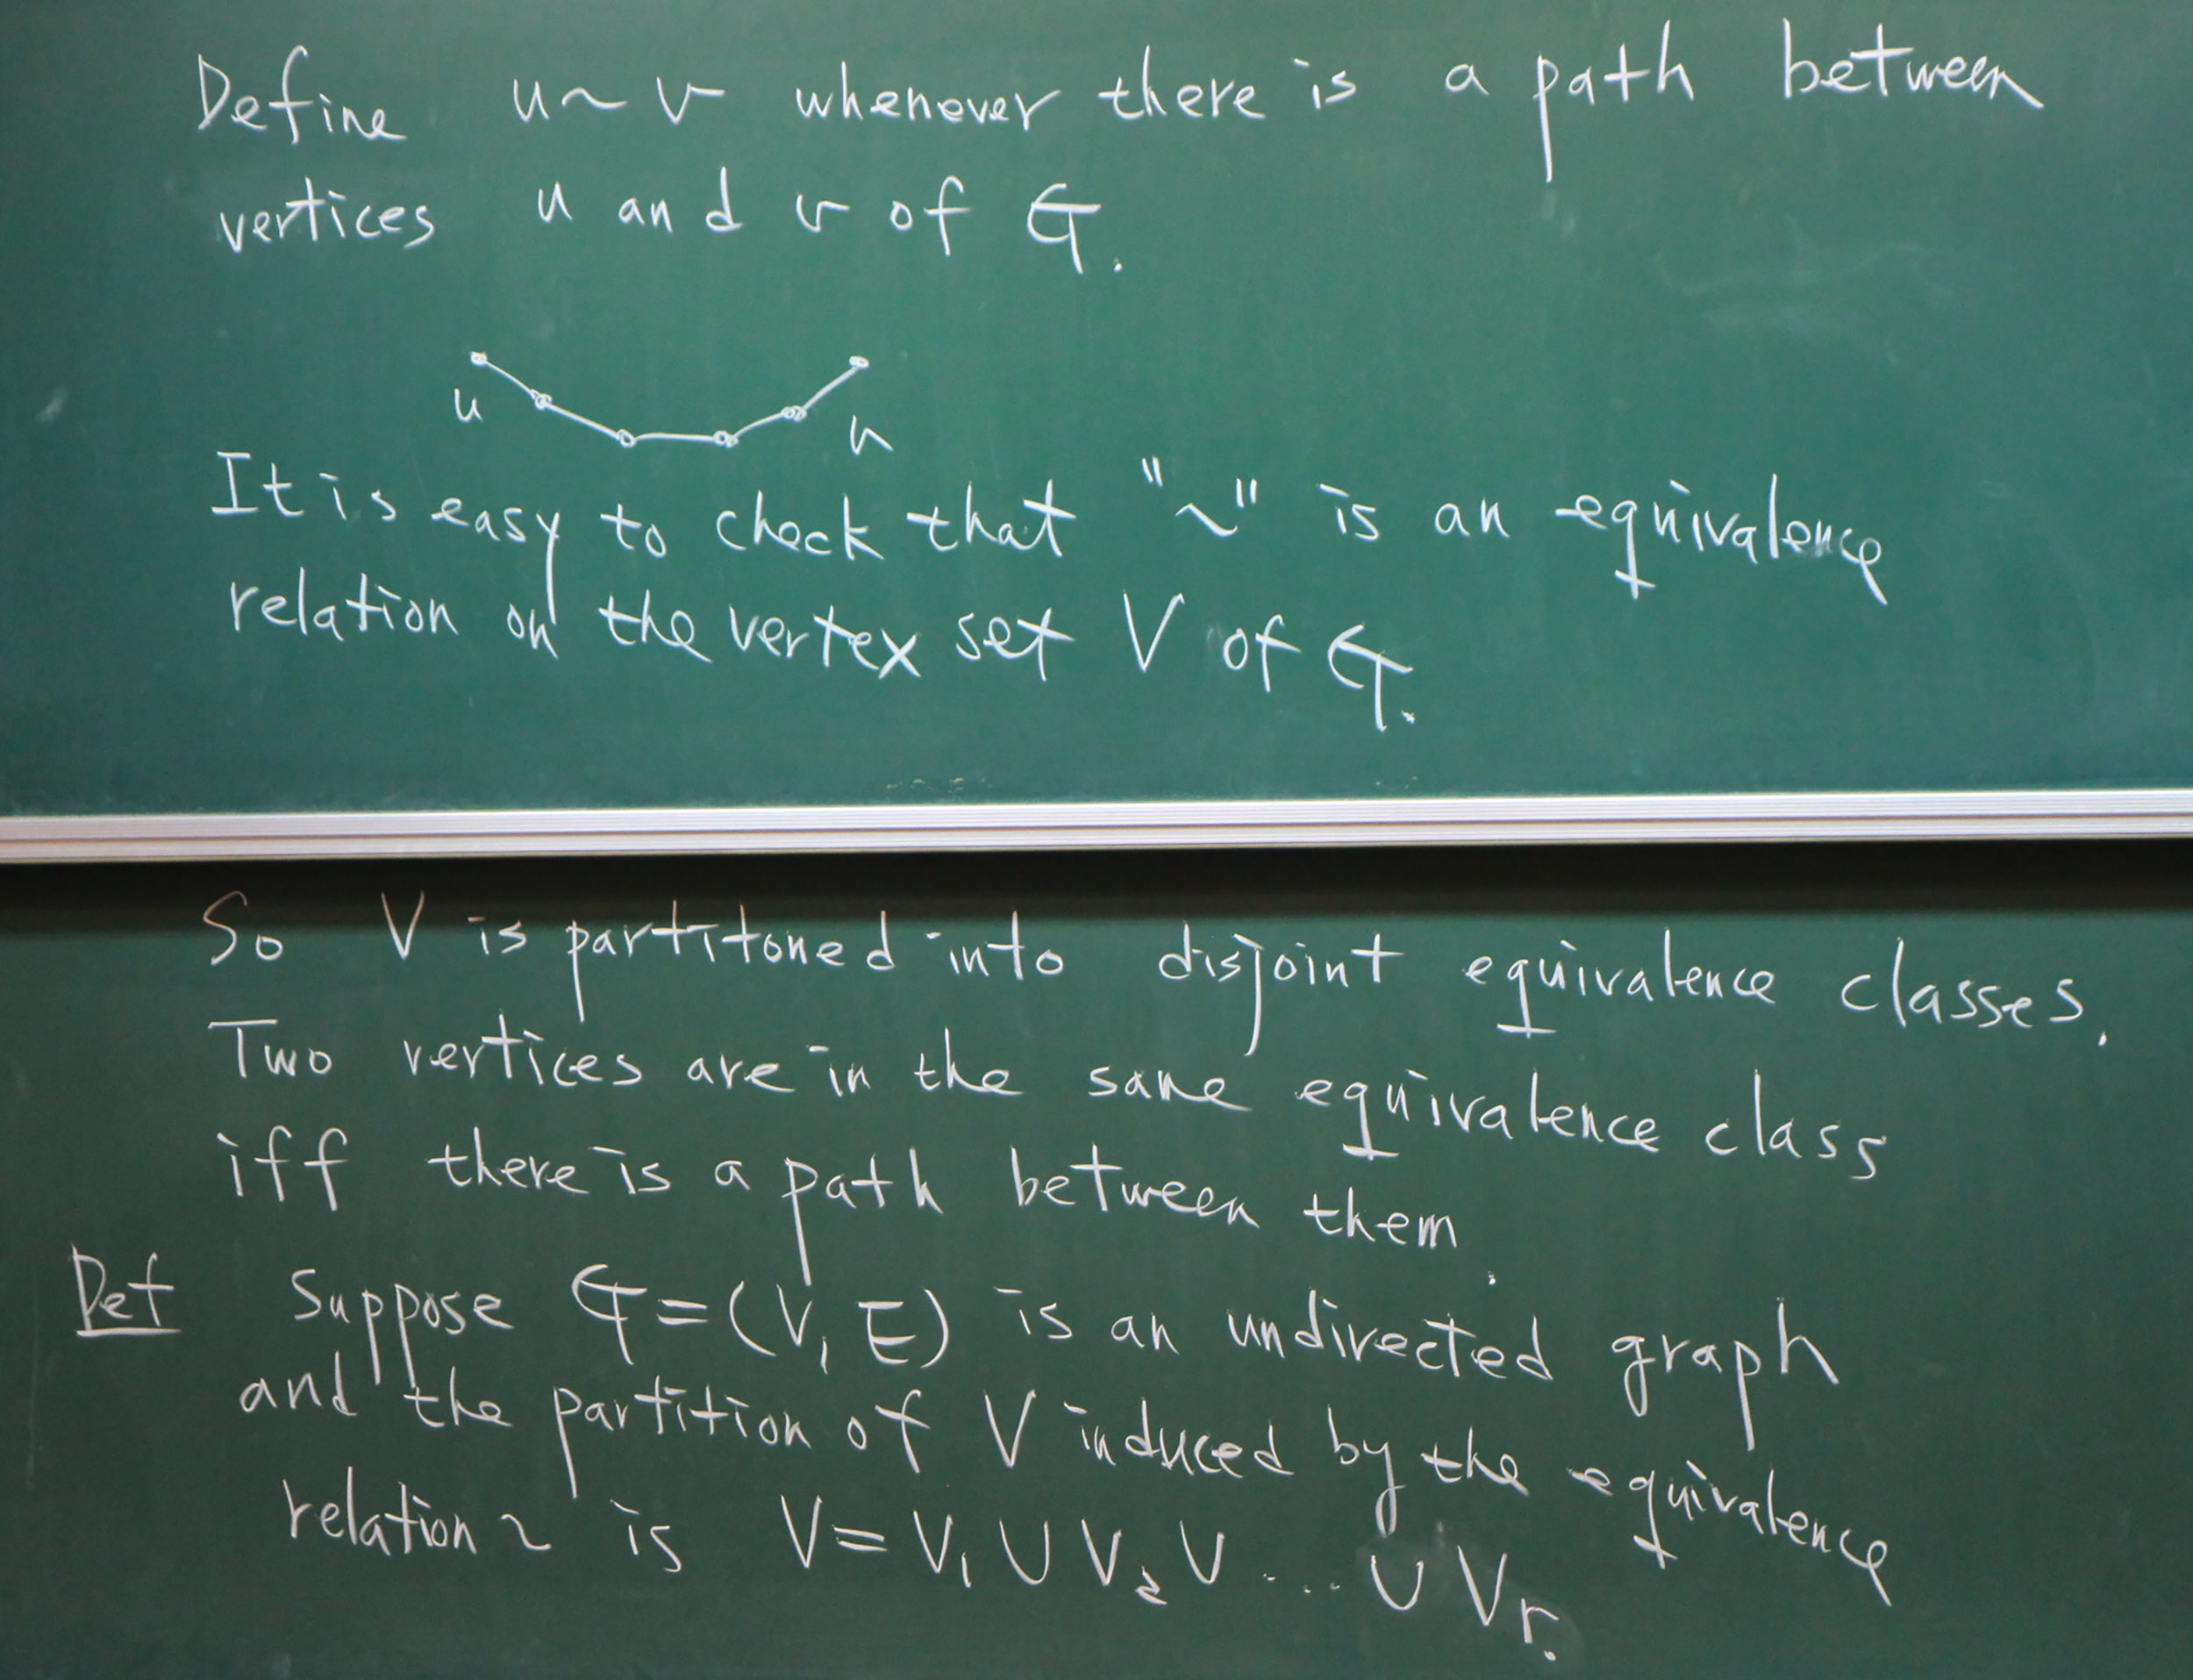 Define u ~ v whenever there is a path between
vertices u and v of G.
u v
It is easy to check that "~" is an equivalence
relation on the vertex set V of G.
So V is partitoned into disjoint equivalence classes.
Two vertices are in the same equivalence class
iff there is a path between them.
Def Suppose G = (V, E) is an undirected graph
and the partition of V induced by the equivalence
relation ~ is V = V₁ ∪ V₂ ∪ .... ∪ Vr.